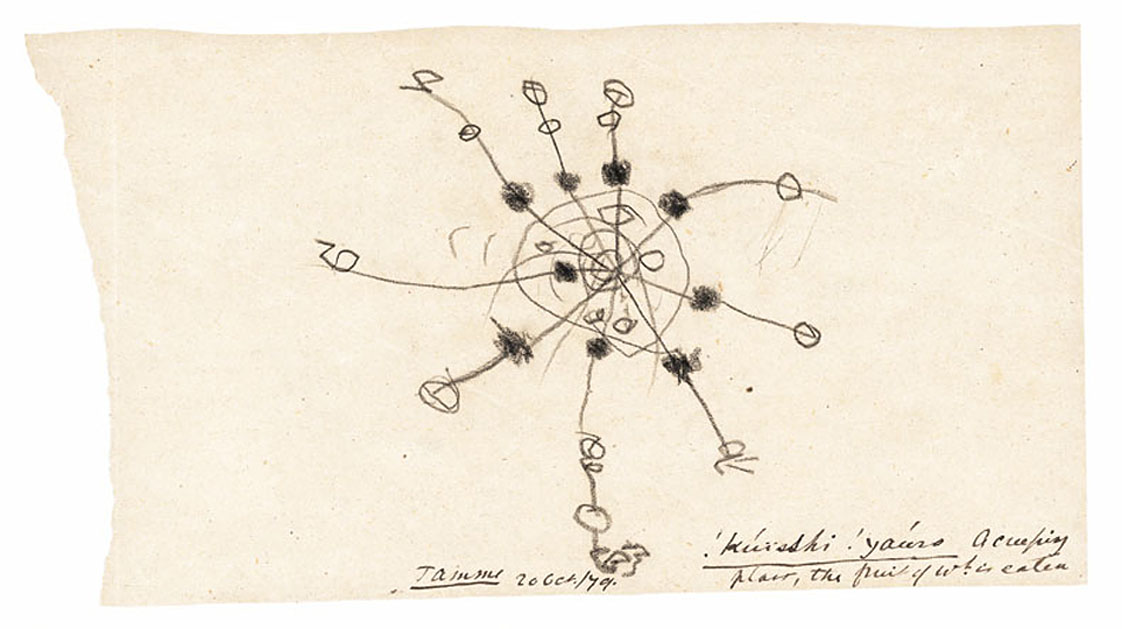 !kúisshi !yaúro A creeping
plant, the fruit of wh. is eaten
Tamme 20 Oct./79.